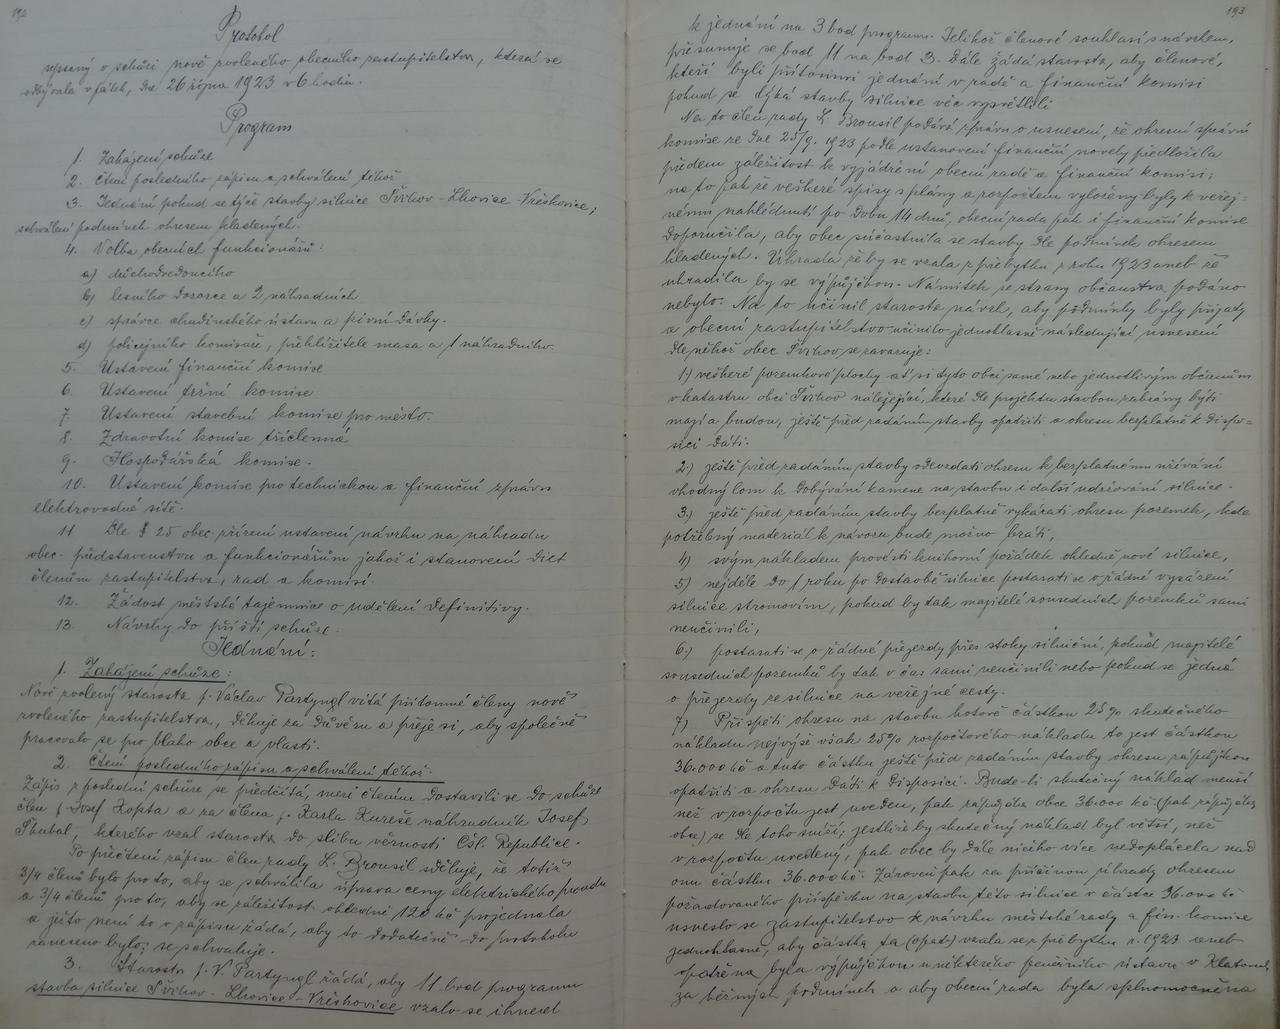 192
Protokol
sepsaný o schůzi nově zvoleného obecního zastupitelstva, která se
odbývala v pátek, dne 26 října 1923 v 6 hodin.
Program
1. Zahájení schůze
2. Čtení posledního zápisu a schválení téhož
3. Jednání pokud se týče stavby silnice Švihov - Lhovice - Vřeskovice;
schválení podmínek okresem kladených.
4. Volba obecních funkcionářů:
a) důchodvedoucího
b) lesního dozorce a 2 náhradních
c) správce chudinského ústavu a pivní dávky.
d) policejního komisaře, přehlížitele masa a 1 náhradního.
5. Ustavení finanční komise
6. Ustavení tržní komise
7. Ustavení stavební komise pro město.
8. Zdravotní komise tříčlenná
9. Hospodářská komise.
10. Ustavení komise pro technickou a finanční zprávu
elektrovodné sítě.
11 Dle § 25 obec. zřízení ustavení návrhu na náhradu
obec. představenstvu a funkcionářům jakož i stanovení diet
členům zastupitelstva, rad a komisí.
12. Žádost městské tajemnice o udělení definitivy.
13. Návrhy do příští schůze.
Jednání:
1. Zahájení schůze:
Nově zvolený starosta p. Václav Partyngl vítá přítomné členy nově
zvoleného zastupitelstva, děkuje za důvěru a přeje si, aby společně
pracovalo se pro blaho obce a vlasti.
2. Čtení posledního zápisu a schválení téhož.
Zápis z poslední schůze se předčítá, mezi čtením dostavili se do schůze
člen p. Josef Kopta a za člena p. Karla Kureše náhradník Josef
Skubal, kterého vzal starosta do slibu věrnosti Čsl. Republice.
Po přečtení zápisu člen rady L. Brousil sděluje, že totiž
3/4 členů bylo pro to, aby se schválila úprava ceny elektrického proudu
a 3/4 členů pro to, aby se záležitost ohledně 120 Kč projednala
a ježto není to v zápisu žádá, aby to dodatečně do protokolu
zaneseno bylo; se schvaluje.
3. Starosta p. V. Partyngl žádá, aby 11. bod programu
stavba silnice Švihov - Lhovice - Vřeskovice vzalo se ihned
193
k jednání na 3 bod programu. Jelikož členové souhlasí s návrhem,
přesunuje se bod 11 na bod 3. Dále žádá starosta, aby členové,
kteří byli přítomni jednání v radě a finanční komisi
pokud se týká stavby silnice věc vysvětlili
Na to člen rady L. Brousil podává zprávu o usnesení, že okresní správní
komise ze dne 25/9. 1923 podle ustanovení finanční novely předložila
předem záležitost k vyjádření obecní radě a finanční komisi;
na to pak že veškeré spisy s plány a rozpočtem vyloženy byly k veřej-
nému nahlédnutí po dobu 14 dnů, obecní rada pak i finanční komise
doporučila, aby obec súčastnila se stavby dle podmínek okresem
kladených. Úhrada že by se vzala z přebytku z roku 1923 aneb že
uhradila by se výpůjčkou. Námitek se strany občanstva podáno
nebylo. Na to učinil starosta návrh, aby podmínky byly přijaty
a obecní zastupitelstvo učinilo jednohlasně následující usnesení
dle něhož obec Švihov se zavazuje:
1) veškeré pozemkové plochy ať si tyto obci samé nebo jednotlivým občanům
v katastru obci Švihov náležející, které dle projektu stavbou zabrány býti
mají a budou, ještě před zadáním stavby opatřiti a okresu bezplatně k dispo-
sici dáti.
2.) ještě před zadáním stavby odevzdati okresu k bezplatnému užívání
vhodný lom k dobývání kamene na stavbu i další udržování silnice.
3.) ještě před zadáním stavby bezplatně vykázati okresu pozemek, kde
potřebný materiál k návozu bude možno bráti,
4) svým nákladem provésti knihovní pořádek ohledně nové silnice,
5) nejdéle do 1 roku po dostavbě silnice postarati se o řádné vysázení
silnice stromovím, pokud by tak majitelé sousedních pozemků sami
neučinili,
6.) postarati se o řádné přejezdy přes stoky silniční, pokud majitelé
sousedních pozemků by tak v čas sami neučinili nebo pokud se jedná
o přejezdy ze silnice na veřejné cesty.
7) Přispěti okresu na stavbu hotově částkou 25% skutečného
nákladu nejvýše však 25% rozpočtového nákladu to jest částkou
36.000 Kč a tuto částku ještě před zadáním stavby okresu zápůjčkou
opatřiti a okresu dáti k disposici. Bude-li skutečný náklad menší
než v rozpočtu jest uveden, pak zápůjčka obce 36.000 Kč (pak zápůjčka
obce) se dle toho sníží; jestliže by skutečný náklad byl větší, než
v rozpočtu uvedený, pak obec by dále ničeho více nedoplácela nad
onu částku 36.000 Kč. Zároveň pak za příčinou úhrady okresem
požadovaného příspěvku na stavbu této silnice v částce 36.000 Kč
usneslo se zastupitelstvo k návrhu městské rady a fin. komise
jednohlasně, aby částka ta (opat) vzala se z přebytku r. 1923 aneb
opatřena byla výpůjčkou u některého peněžního ústavu v Klatovech
za běžných podmínek a aby obecní rada byla splnomocněna